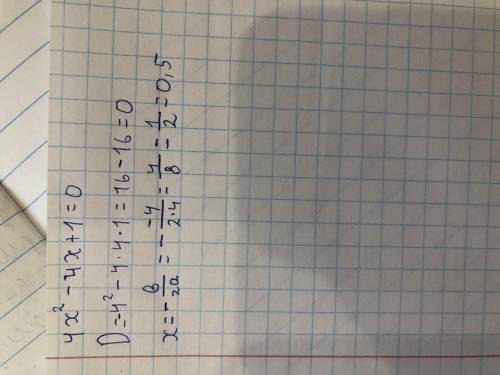 4x² - 4x + 1 = 0
D = 4² - 4·4·1 = 16 - 16 = 0
x = - b/2a = - -4/2·4 = 4/8 = 1/2 = 0,5